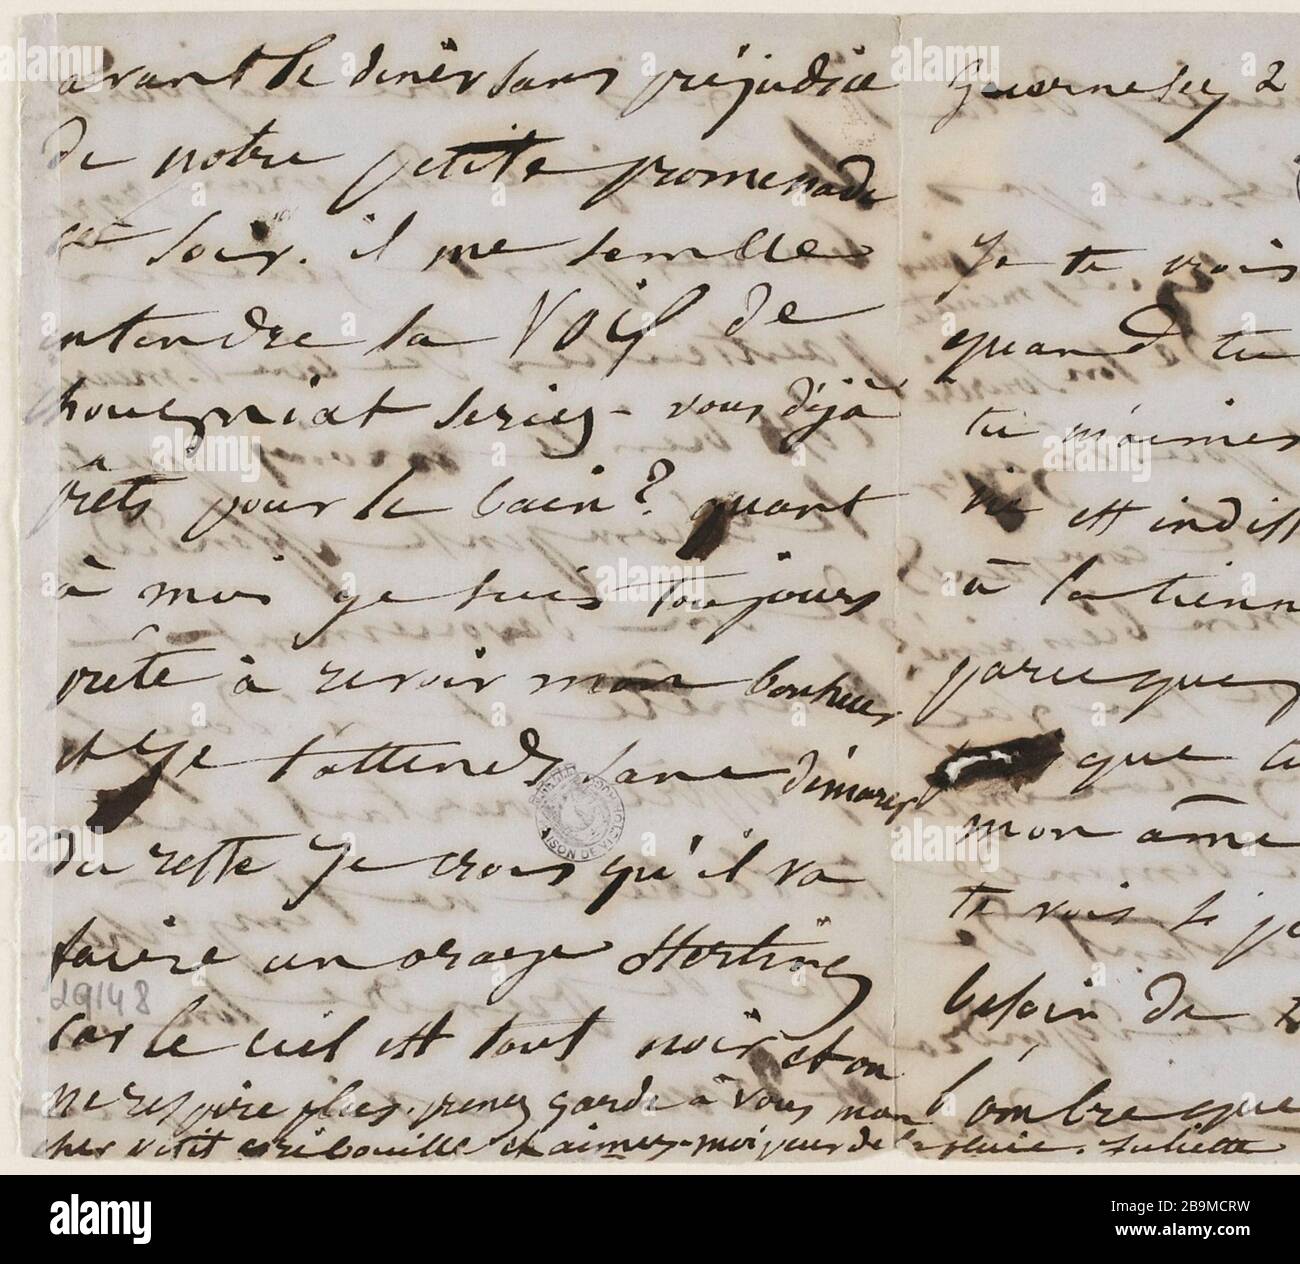 avant le diner sans préjudice
de notre petite promenade
ce soir. il me semble
entendre la voix de
seriez-vous déjà
prêts pour le bain? quant
à moi je suis toujours
prête à revoir mon bonheur
et je t'attends sans
du reste Je crois qu'il va
faire un orage
29148
car le ciel est tout noir et on
ne respire plus. prenez garde à vous mon
cher petit gribouille et aimez-moi peur de la pluie. Juliette
Guernesey 2
Je te vois
quand tu
tu m'aimes
vie est indiss
à la tienn
parceque
que tu
mon âme
te vois
besoin de
l'ombre que
MAISON DE VICTOR
alamy
Image ID: 2B9MCRW
www.alamy.com